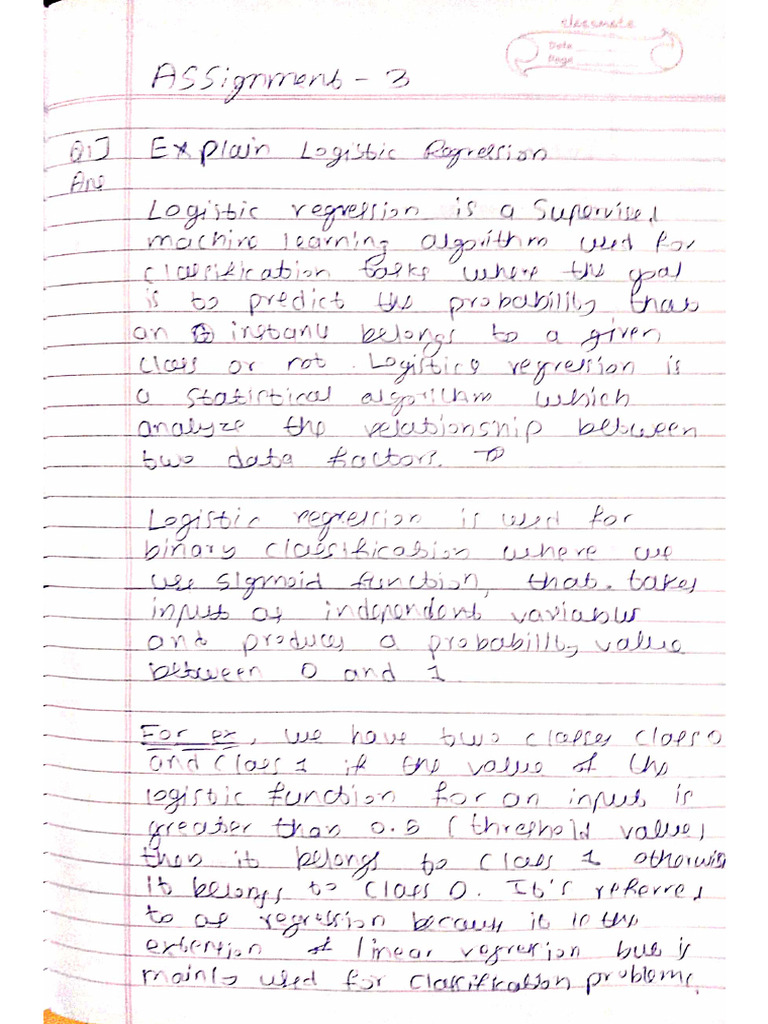 classmate
Date
Page
Assignment - 3
Q1] Explain Logistic Regression
Ans
Logistic regression is a Supervised
machine learning algorithm used for
classification tasks where the goal
is to predict the probability that
an instance belongs to a given
class or not. Logistics regression is
a statistical algorithm which
analyze the relationship between
two data factors.
Logistic regression is used for
binary classification where we
use sigmoid function, that takes
input as independent variables
and produces a probability value
between 0 and 1
For ex, we have two classes class 0
and class 1 if the value of the
logistic function for an input is
greater than 0.5 (threshold value)
then it belongs to class 1 otherwise
It belongs to class 0. It's referred
to as regression because it is the
extension of linear regression but is
mainly used for classification problems.